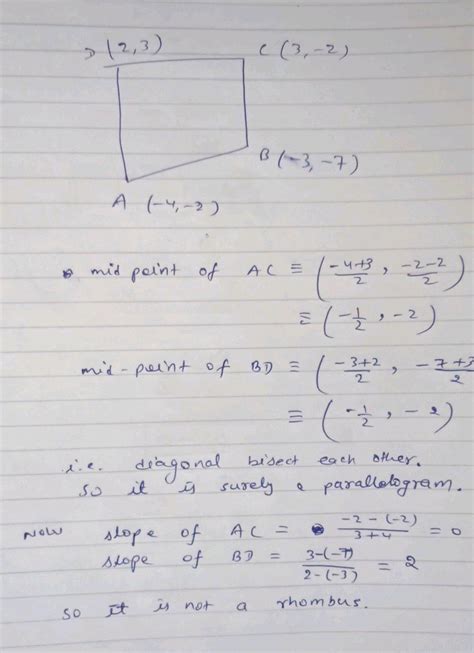 D (2,3) C (3,-2)
B (-3,-7)
A (-4,-2)
mid point of AC ≡ (-4+3/2 , -2-2/2)
≡ (-1/2 , -2)
mid-point of BD ≡ (-3+2/2 , -7+3/2
≡ (-1/2 , -2)
i.e. diagonal bisect each other.
so it is surely a parallelogram.
Now slope of AC = -2-(-2)/3+4 = 0
slope of BD = 3-(-7)/2-(-3) = 2
so it is not a rhombus.